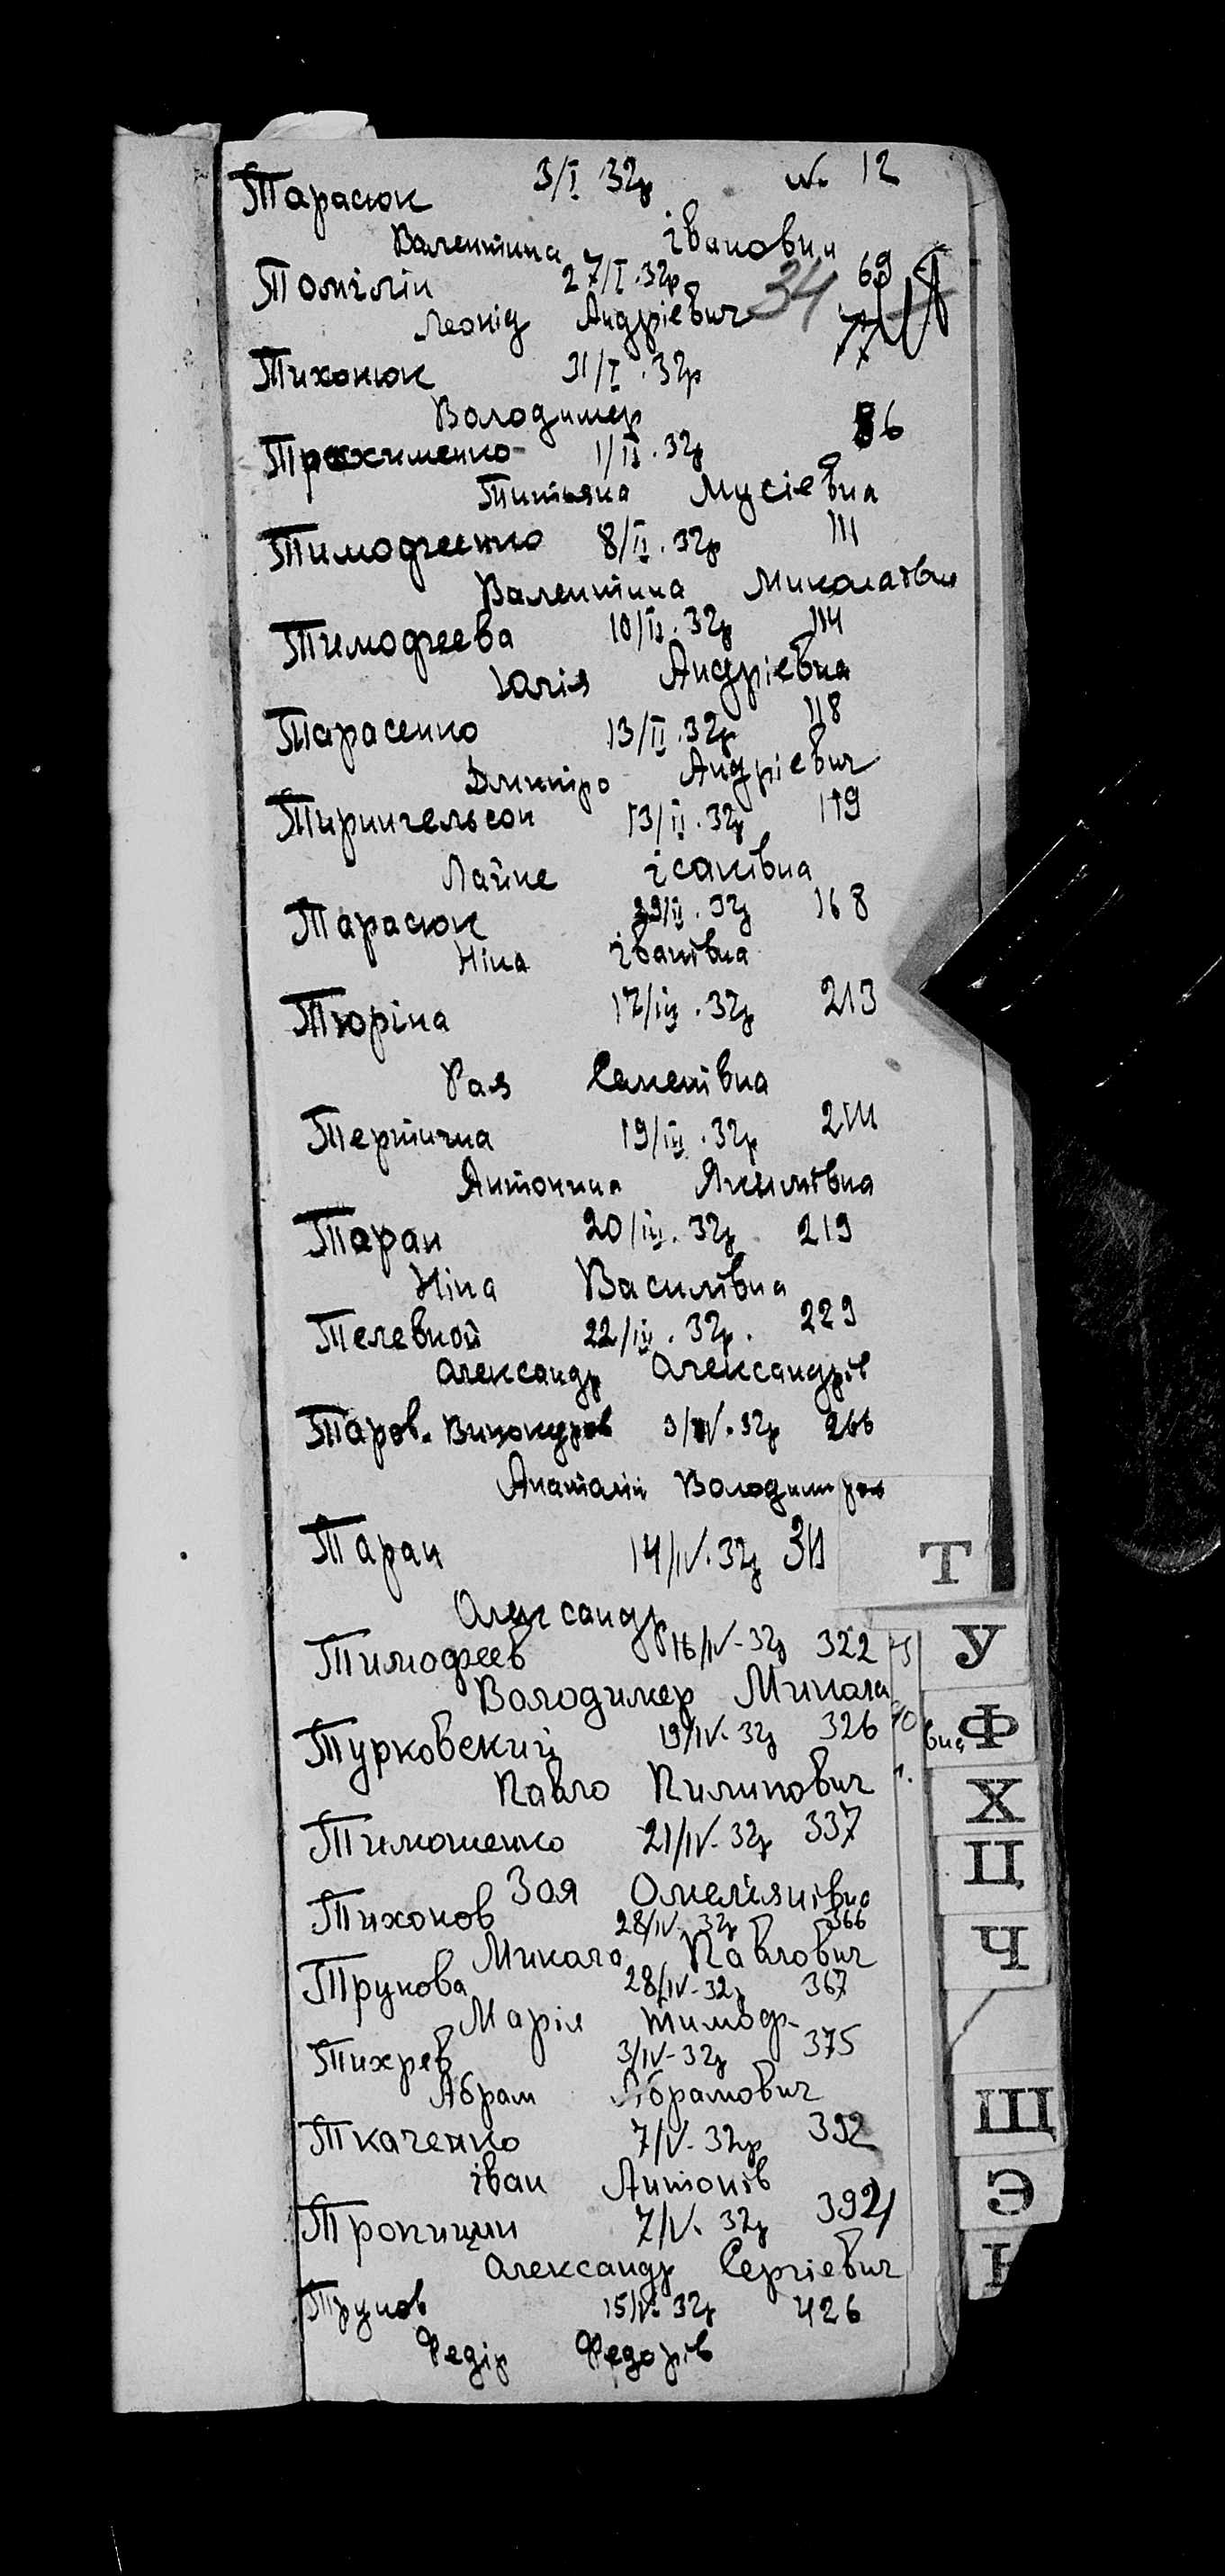 Тарасюк 3/I 32р № 12
Валентина івановна
Томілін 27/I.32р 69
Леонід Андрієвич 34
Тихонюк 31/I.32р 77
Володимер
Трохименко 1/II.32р 86
Титьяна Мусієвна
Тимофеенко 8/II.32р 111
Валентина Миколаївна
Тимофеева 10/II.32р 114
Юлія Андрієвна
Тарасенко 13/II.32р 118
Дмитро Андрієвич
Тирингельсон 13/II.32р 119
Лайне ісаківна
Тарасюк 29/II.32р 168
Ніна іванівна
Тюріна 17/III.32р 213
Рая Семенівна
Тертична 19/III.32р
Антонина Якимівна
Таран 20/III.32р 219
Ніна Василівна
Телевной 22/III.32р. 229
Олександр Олександрів
Таров. Винокуров 3/IV.32р 266
Анатолій Володимиров
Таран 14/IV.32р
Олександр
Тимофеев 16/IV-32р 322
Володимер Микола
Турковский 19/IV-32р 326
Павло Пилипович
Тимошенко 21/IV-32р 337
Зоя Омелянівна
Тихонов 28/IV-32р 366
Микола Павлович
Трунова 28/IV-32р 367
Марія тимоф-
Тихрев 3/IV-32р 375
Абрам Абрамович
Ткаченко 7/V-32р 392
іван Антонів
Тропицин 7/V.32р
Олександр Сергієвич
Трунов 15/V-32р 426
Федір Федорів
вна
Т
У
Ф
Х
Ц
Ч
Щ
Э